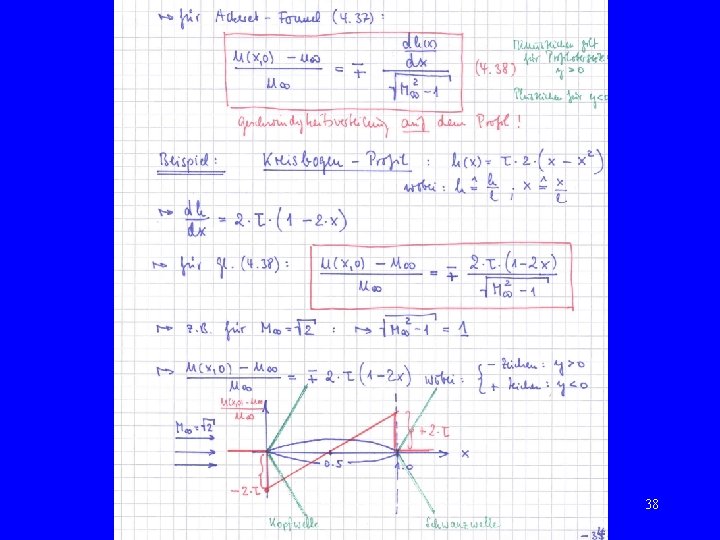 ↦ für Ackeret-Formel (4.37):
u(x,0) − u∞ / u∞ = ∓ dh(x)/dx / √(M∞² − 1) (4.38)
Minuszeichen gilt
für Profiloberseite
y > 0
Pluszeichen für y < 0
Geschwindigkeitsverteilung auf dem Profil!
Beispiel: Kreisbogen-Profil : h(x) = τ · 2 · (x − x²)
wobei: h ≙ h/l ; x ≙ x/l
↦ dh/dx = 2 · τ · (1 − 2 · x)
↦ für Gl. (4.38): u(x,0) − u∞ / u∞ = ∓ 2 · τ · (1 − 2x) / √(M∞² − 1)
↦ z.B. für M∞ = √2 : ↦ √(M∞² − 1) = 1
↦ u(x,0) − u∞ / u∞ = ∓ 2 · τ (1 − 2x) wobei: { − Zeichen: y > 0
+ Zeichen: y < 0
u(x,0) − u∞ / u∞
M∞ = √2
+2·τ
0.5
1.0
x
−2·τ
Kopfwelle
Schwanzwelle
38